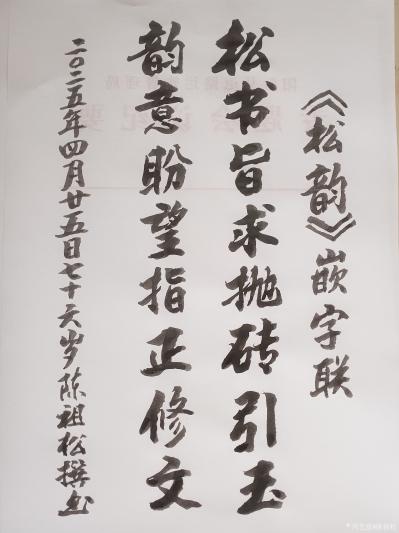 《松韵》嵌字联
松书旨求抛砖引玉
韵意盼望指正修文
二〇二五年四月廿五日七十六岁陈祖松撰书